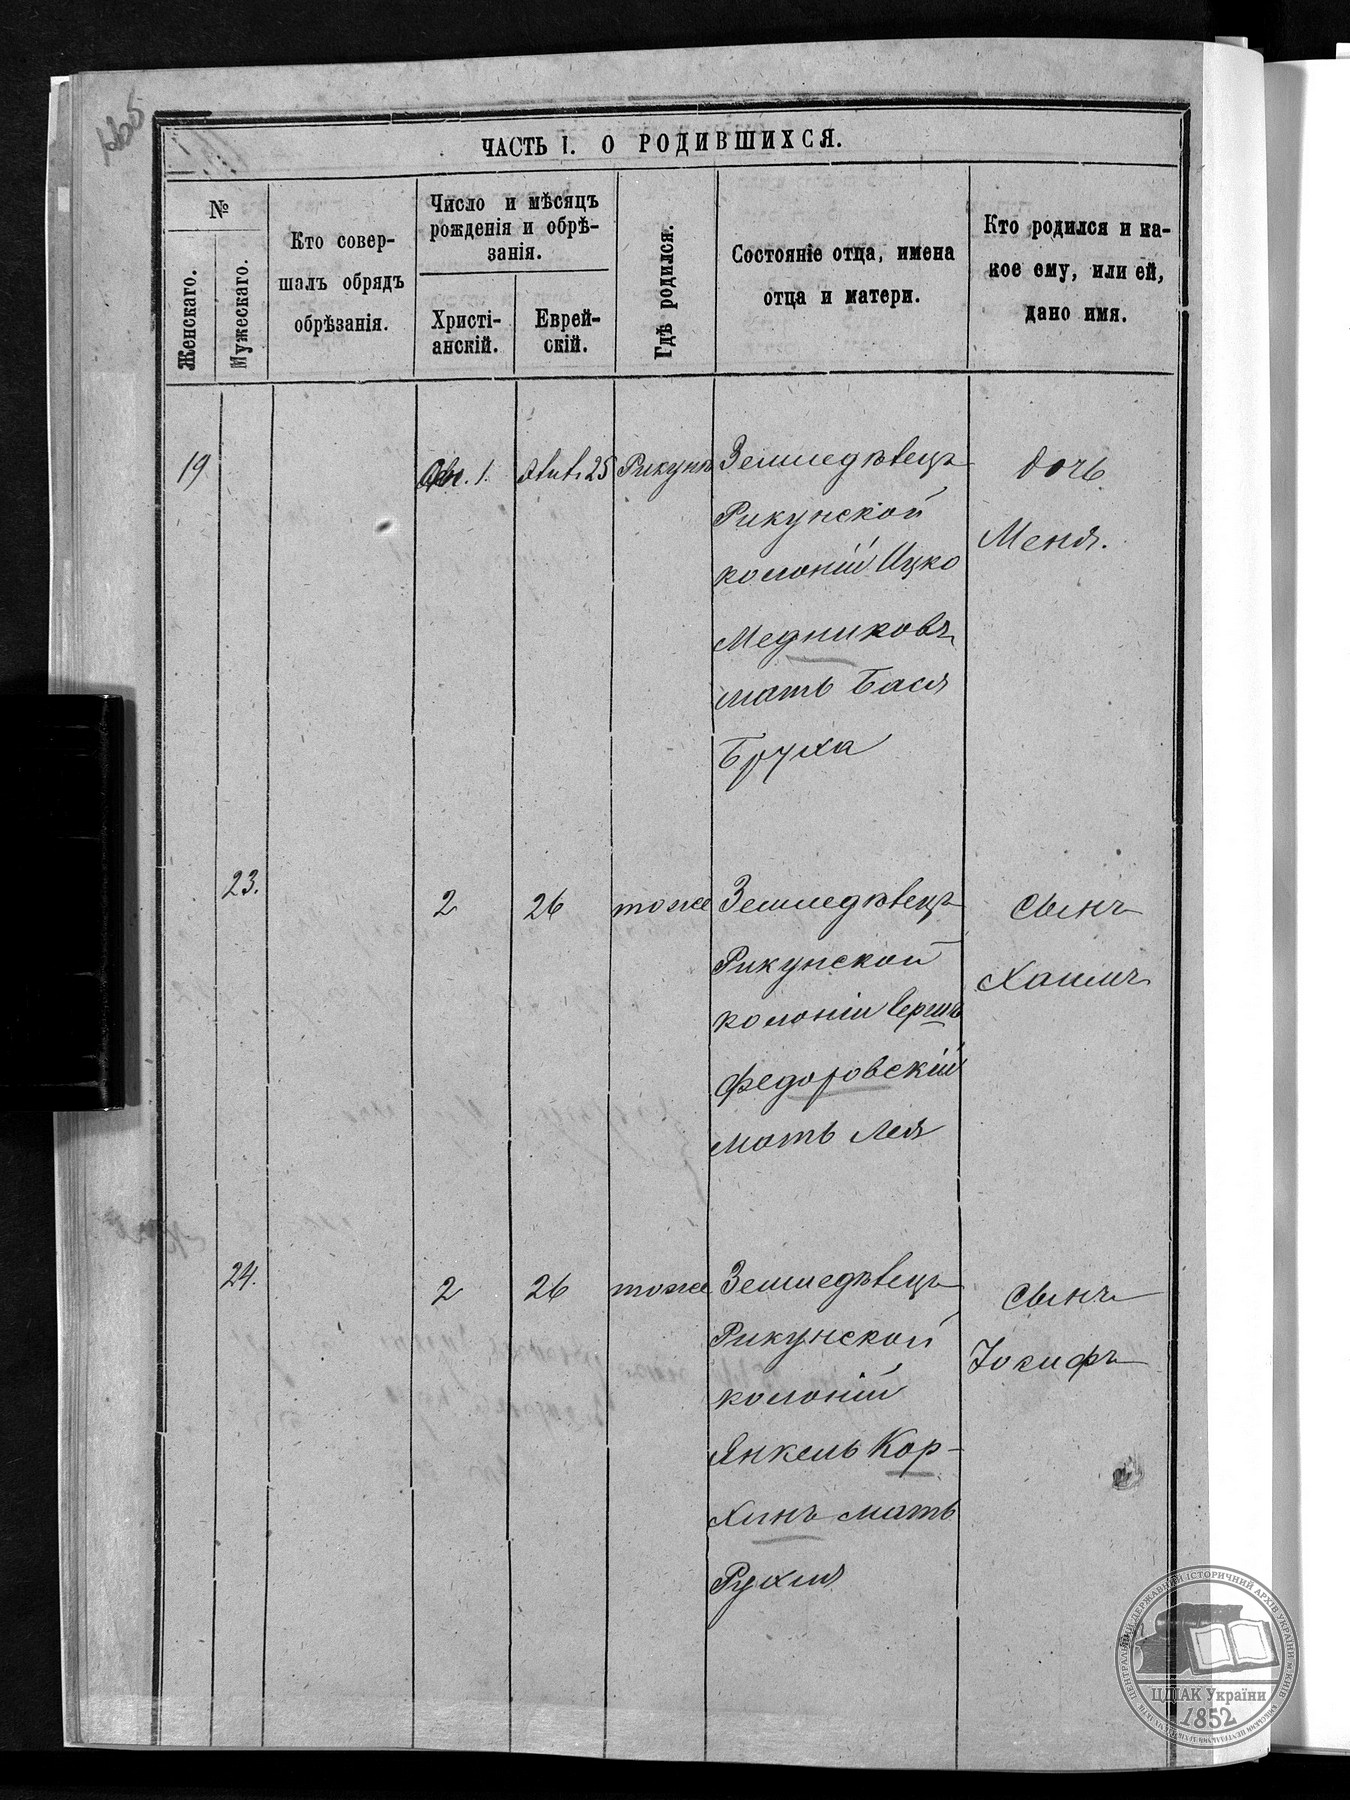 ЧАСТЬ I. О РОДИВШИХСЯ.
№
Женскаго.
Мужескаго.
Кто совер-
шалъ обрядъ
обрѣзанія.
Число и мѣсяцъ
рожденія и обрѣ-
занія.
Христі-
анскій.
Еврей-
скій.
Гдѣ родился.
Состояніе отца, имена
отца и матери.
Кто родился и ка-
кое ему, или ей,
дано имя.
19
1.
25
Рикунь
Землѣдѣвецъ
Рикунской
колоніи Ицко
Медниковъ
мать Бася
Бруха
дочь
Меня.
23.
2
26
тоже
Землѣдѣвецъ
Рикунской
колоніи Бершъ
Федоровскій
мать Лея
сынъ
Хаимъ
24.
2
26
тоже
Землѣдѣвецъ
Рикунской
колоніи
Янкель Кор-
хинъ мать
Рухля
сынъ
Іосифъ
ЦДІАК України
1852